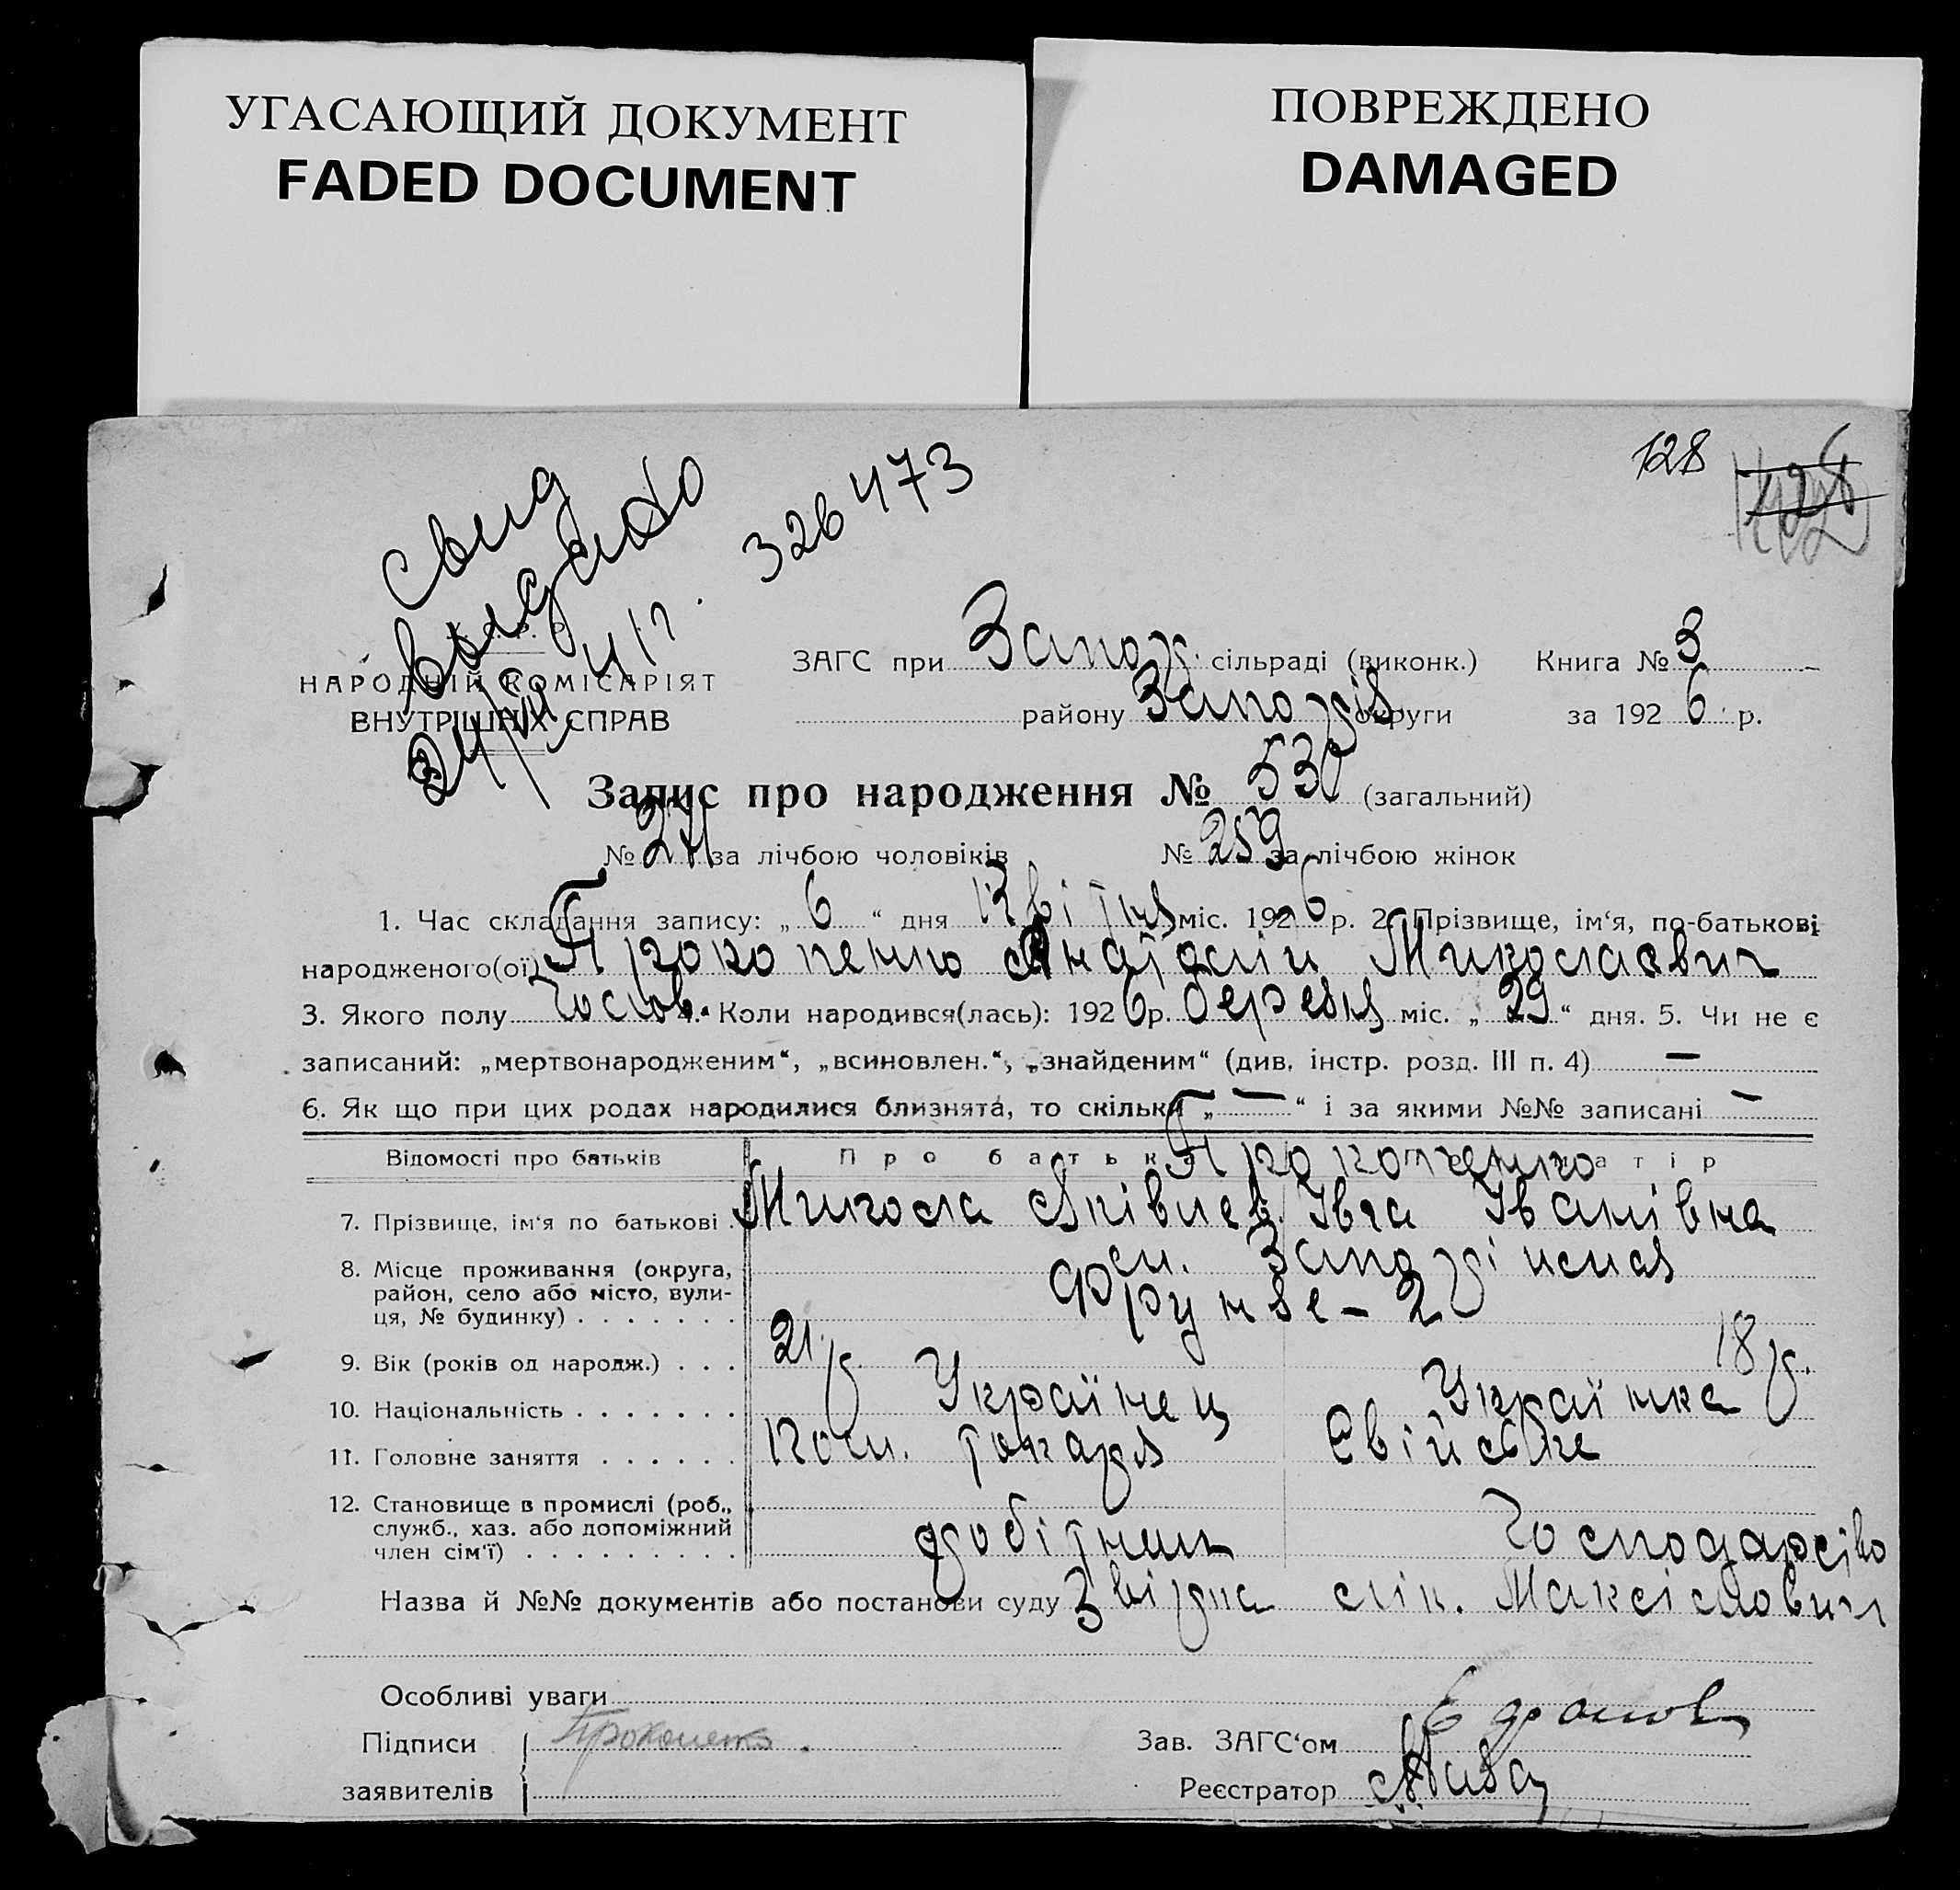 УГАСАЮЩИЙ ДОКУМЕНТ
FADED DOCUMENT
ПОВРЕЖДЕНО
DAMAGED
128
свид
выдано
326473
НАРОДНІЙ КОМІСАРІЯТ
ВНУТРІШНІХ СПРАВ
ЗАГС при Запор. сільраді (виконк.) Книга № 3
району Запоріз. округи за 1926 р.
Запис про народження № 530 (загальний)
№ 271 за лічбою чоловіків № 259 за лічбою жінок
1. Час складання запису: „6“ дня Квітня міс. 1926 р. 2. Прізвище, ім‘я, по-батькові
народженого(ої) Прокопенко Анатолій Миколаєвич
3. Якого полу чолов. 4. Коли народився(лась): 1926 р. березня міс. „29“ дня. 5. Чи не є
записаний: „мертвонародженим“, „всиновлен.“, „знайденим“ (див. інстр. розд. III п. 4) —
6. Як що при цих родах народилися близнята, то скільки „—“ і за якими №№ записані —
Відомості про батьків Про батька Прокопенко матір
7. Прізвище, ім‘я по батькові Микола Яківлев. Івга Іванівна
8. Місце проживання (округа, район, село або місто, вулиця, № будинку) м. Запоріжжя
Фрунзе - 2
9. Вік (років од народж.) 21 р. 18 р.
10. Національність Українец Українка
11. Головне заняття пом. токаря Свійське
12. Становище в промислі (роб., служб., хаз. або допоміжний член сім‘ї) робітник господарство
Назва й №№ документів або постанови суду Звідка лік. Максімович
Особливі уваги
Підписи Прокопенко Зав. ЗАГС‘ом
заявителів Реєстратор